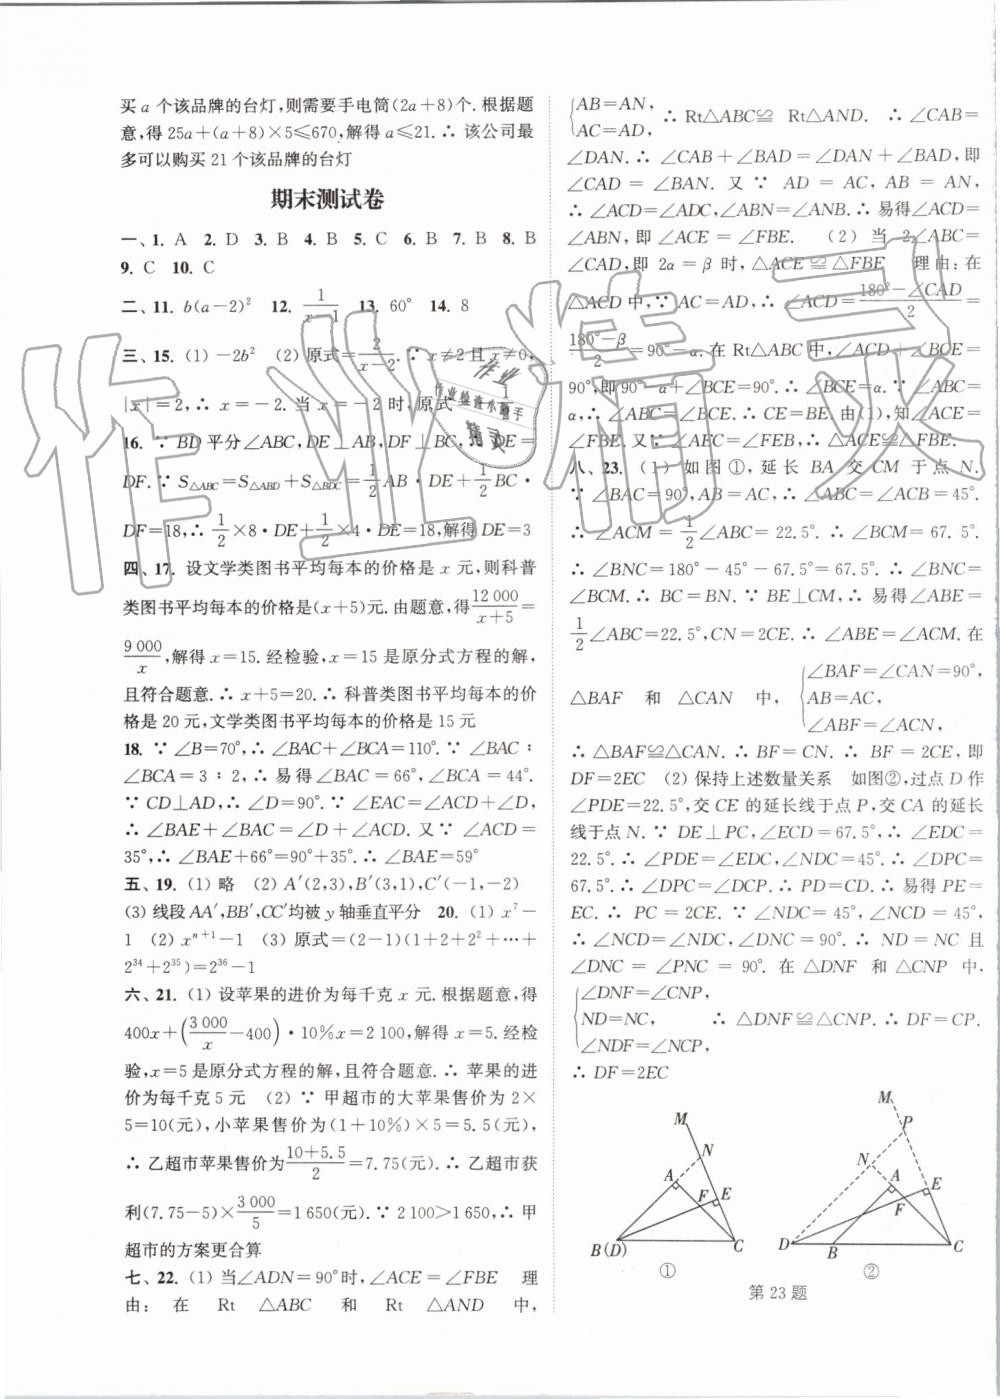 买 a 个该品牌的台灯,则需要手电筒(2a+8)个.根据题
意,得 25a+(a+8)×5≤670,解得 a≤21.∴ 该公司最
多可以购买 21 个该品牌的台灯
期末测试卷
一、1. A 2. D 3. B 4. B 5. C 6. B 7. B 8. B
9. C 10. C
二、11. b(a-2)² 12. 1/(x-1) 13. 60° 14. 8
三、15. (1) -2b² (2) 原式=2/(x-2).∵ x≠2 且 x≠0,
|x|=2,∴ x=-2. 当 x=-2 时,原式=
16. ∵ BD 平分∠ABC,DE⊥AB,DF⊥BC,∴ DE=
DF.∵ S△ABC=S△ABD+S△BDC=1/2 AB·DE+1/2 BC·
DF=18,∴ 1/2×8·DE+1/2×4·DE=18,解得 DE=3
四、17. 设文学类图书平均每本的价格是 x 元,则科普
类图书平均每本的价格是(x+5)元.由题意,得12 000/(x+5)=
9 000/x,解得 x=15.经检验,x=15 是原分式方程的解,
且符合题意.∴ x+5=20.∴ 科普类图书平均每本的价
格是 20 元,文学类图书平均每本的价格是 15 元
18. ∵ ∠B=70°,∴ ∠BAC+∠BCA=110°.∵ ∠BAC∶
∠BCA=3∶2,∴ 易得∠BAC=66°,∠BCA=44°.
∵ CD⊥AD,∴ ∠D=90°.∵ ∠EAC=∠ACD+∠D,
∴ ∠BAE+∠BAC=∠D+∠ACD.又∵ ∠ACD=
35°,∴ ∠BAE+66°=90°+35°.∴ ∠BAE=59°
五、19. (1) 略 (2) A′(2,3),B′(3,1),C′(-1,-2)
(3) 线段 AA′,BB′,CC′均被 y 轴垂直平分 20. (1) x⁷-
1 (2) xⁿ⁺¹-1 (3) 原式=(2-1)(1+2+2²+…+
2³⁴+2³⁵)=2³⁶-1
六、21. (1) 设苹果的进价为每千克 x 元.根据题意,得
400x+(3 000/x-400)·10%x=2 100,解得 x=5.经检
验,x=5 是原分式方程的解,且符合题意.∴ 苹果的进
价为每千克 5 元 (2) ∵ 甲超市的大苹果售价为 2×
5=10(元),小苹果售价为(1+10%)×5=5.5(元),
∴ 乙超市苹果售价为(10+5.5)/2=7.75(元).∴ 乙超市获
利(7.75-5)×3 000/5=1 650(元).∵ 2 100>1 650,∴ 甲
超市的方案更合算
七、22. (1) 当∠ADN=90°时,∠ACE=∠FBE 理
由: 在 Rt △ABC 和 Rt △AND 中,
{AB=AN, AC=AD, ∴ Rt△ABC≌Rt△AND. ∴ ∠CAB=
∠DAN.∴ ∠CAB+∠BAD=∠DAN+∠BAD,即
∠CAD=∠BAN. 又∵ AD=AC,AB=AN,
∴ ∠ACD=∠ADC,∠ABN=∠ANB.∴ 易得∠ACD=
∠ABN,即∠ACE=∠FBE. (2) 当 2∠ACB=
∠CAD,即 2α=β 时,△ACE≌△FBE 理由:在
△ACD 中,∵ AC=AD,∴ ∠ACD=(180°-∠CAD)/2=
(180°-β)/2=90°-α. 在 Rt△ABC 中,∠ACD+∠BCE=
90°,即 90°-α+∠BCE=90°.∴ ∠BCE=α.∵ ∠ABC=
α,∴ ∠ABC=∠BCE.∴ CE=BE.由(1),知∠ACE=
∠FBE.又∵ ∠AEC=∠FEB,∴ △ACE≌△FBE.
八、23. (1) 如图①,延长 BA 交 CM 于点 N.
∵ ∠BAC=90°,AB=AC,∴ ∠ABC=∠ACB=45°.
∴ ∠ACM=1/2∠ABC=22.5°.∴ ∠BCM=67.5°.
∴ ∠BNC=180°-45°-67.5°=67.5°.∴ ∠BNC=
∠BCM.∴ BC=BN.∵ BE⊥CM,∴ 易得∠ABE=
1/2∠ABC=22.5°,CN=2CE.∴ ∠ABE=∠ACM.在
△BAF 和 △CAN 中, {∠BAF=∠CAN=90°, AB=AC, ∠ABF=∠ACN,
∴ △BAF≌△CAN.∴ BF=CN.∴ BF=2CE,即
DF=2EC (2) 保持上述数量关系 如图②,过点 D 作
∠PDE=22.5°,交 CE 的延长线于点 P,交 CA 的延长
线于点 N.∵ DE⊥PC,∠ECD=67.5°,∴ ∠EDC=
22.5°.∴ ∠PDE=∠EDC,∠NDC=45°.∴ ∠DPC=
67.5°.∴ ∠DPC=∠DCP.∴ PD=CD.∴ 易得 PE=
EC.∴ PC=2CE.∵ ∠NDC=45°,∠NCD=45°,
∴ ∠NCD=∠NDC,∠DNC=90°.∴ ND=NC 且
∠DNC=∠PNC=90°. 在△DNF 和△CNP 中,
{∠DNF=∠CNP, ND=NC, ∠NDF=∠NCP, ∴ △DNF≌△CNP.∴ DF=CP.
∴ DF=2EC
M N A F E B(D) C ①
M P N A E F D B C ②
第 23 题
作业精灵
作业
作业检查小助手
精灵